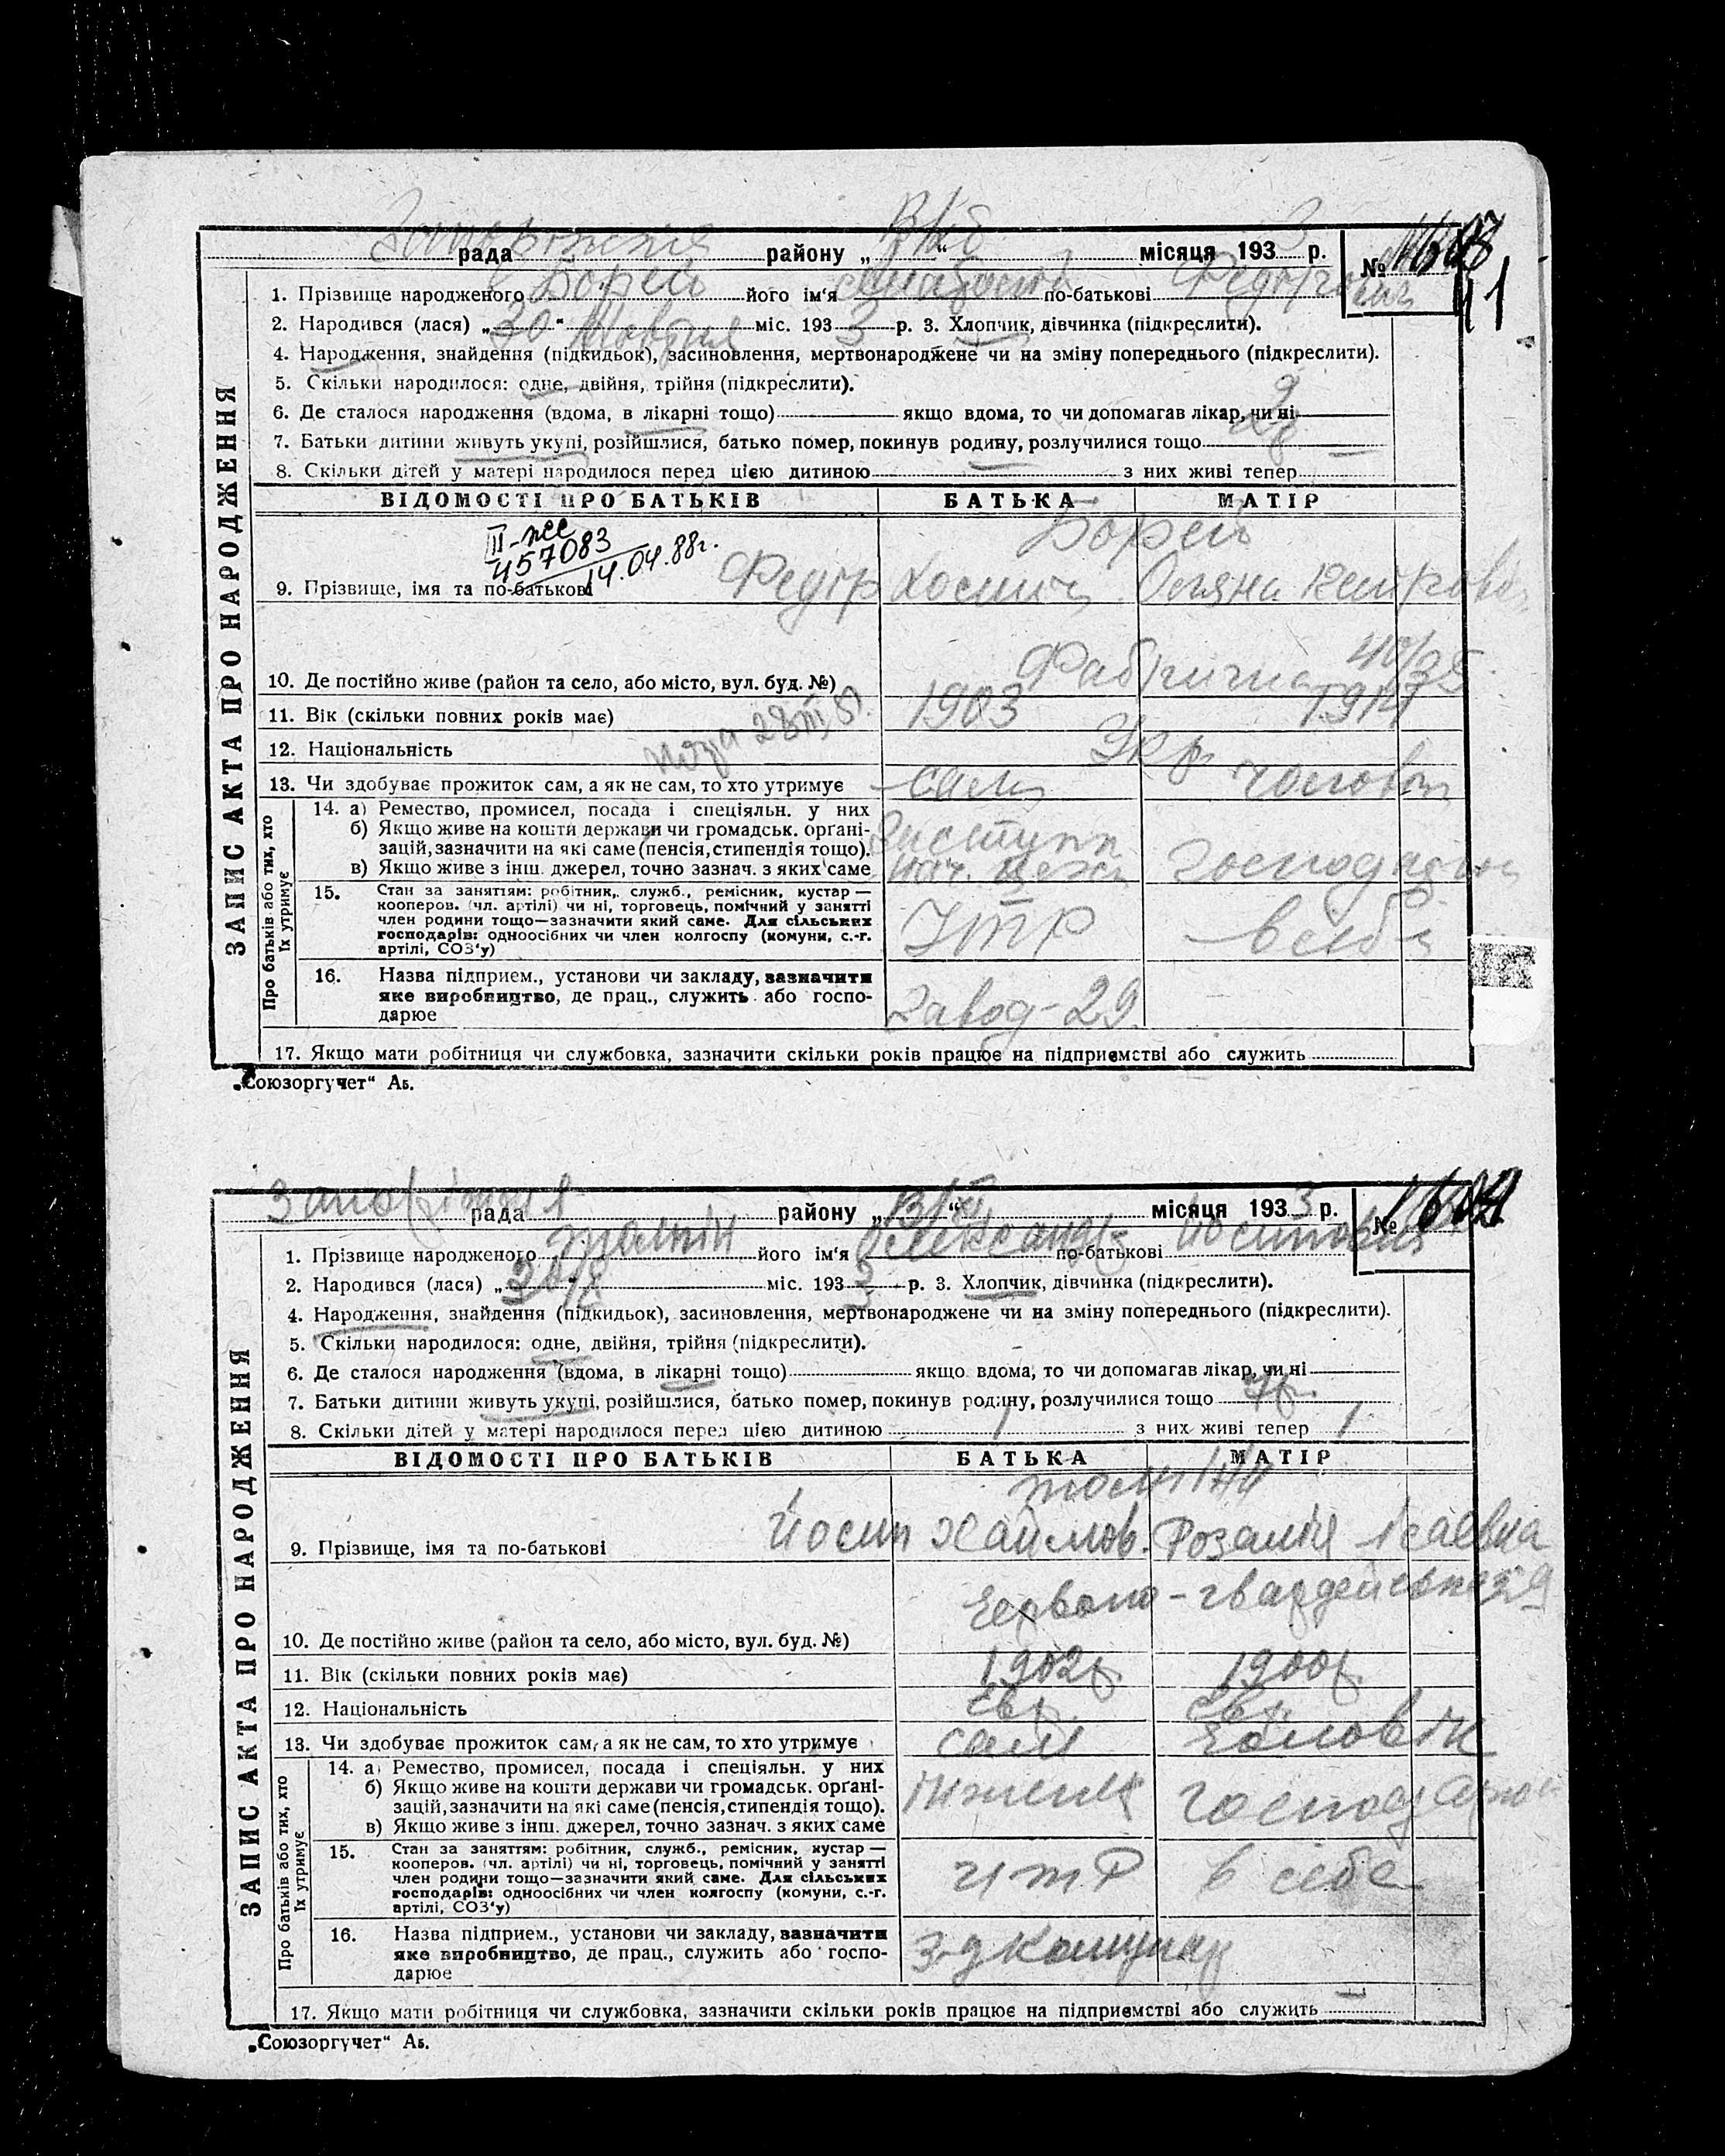 рада району „ “ місяця 1933 р. №
1. Прізвище народженого Борейь його ім‘я по-батькові
2. Народився (лася) „30“ міс. 1933 р. 3. Хлопчик, дівчинка (підкреслити).
4. Народження, знайдення (підкидьок), засиновлення, мертвонароджене чи на зміну попереднього (підкреслити).
5. Скільки народилося: одне, двійня, трійня (підкреслити).
6. Де сталося народження (вдома, в лікарні тощо) якщо вдома, то чи допомагав лікар, чи ні
7. Батьки дитини живуть укупі, розійшлися, батько помер, покинув родину, розлучилися тощо
8. Скільки дітей у матері народилося перед цією дитиною з них живі тепер
ЗАПИС АКТА ПРО НАРОДЖЕННЯ
ВІДОМОСТІ ПРО БАТЬКІВ БАТЬКА МАТІР
III-же
457083
14.04.88г.
9. Прізвище, імя та по-батькові Федір
10. Де постійно живе (район та село, або місто, вул. буд. №) Фабрична 40/35
11. Вік (скільки повних років має) 1903 1914
12. Національність Укр
13. Чи здобуває прожиток сам, а як не сам, то хто утримує сам
Про батьків або тих, хто їх утримує
14. а) Ремество, промисел, посада і спеціяльн. у них
б) Якщо живе на кошти держави чи громадськ. орґані-
зацій, зазначити на які саме (пенсія, стипендія тощо).
в) Якщо живе з інш. джерел, точно зазнач. з яких саме нач. цеха
15. Стан за заняттям: робітник, служб., ремісник, кустар —
кооперов. (чл. артілі) чи ні, торговець, помічний у занятті
член родини тощо—зазначити який саме. Для сільських
господарів: одноосібних чи член колгоспу (комуни, с.-г.
артілі, СОЗ‘у) ІТР в себе
16. Назва підприєм., установи чи закладу, зазначити
яке виробництво, де прац., служить або госпо-
дарює Завод-29.
17. Якщо мати робітниця чи службовка, зазначити скільки років працює на підприємстві або служить
„Союзоргучет“ Аб.
Запоріжжя рада району „ “ місяця 1933 р. №
1. Прізвище народженого його ім‘я Олександр по-батькові Йосипович
2. Народився (лася) „ “ міс. 1933 р. 3. Хлопчик, дівчинка (підкреслити).
4. Народження, знайдення (підкидьок), засиновлення, мертвонароджене чи на зміну попереднього (підкреслити).
5. Скільки народилося: одне, двійня, трійня (підкреслити).
6. Де сталося народження (вдома, в лікарні тощо) якщо вдома, то чи допомагав лікар, чи ні
7. Батьки дитини живуть укупі, розійшлися, батько помер, покинув родину, розлучилися тощо 7р.
8. Скільки дітей у матері народилося перед цією дитиною 1 з них живі тепер 1
ЗАПИС АКТА ПРО НАРОДЖЕННЯ
ВІДОМОСТІ ПРО БАТЬКІВ БАТЬКА МАТІР
9. Прізвище, імя та по-батькові Йосип Хаймов. Розалія Ісаєвна
Червоно-гвардейська 39
10. Де постійно живе (район та село, або місто, вул. буд. №)
11. Вік (скільки повних років має) 1902р. 1900р.
12. Національність євр. євр.
13. Чи здобуває прожиток сам, а як не сам, то хто утримує сам чоловік
Про батьків або тих, хто їх утримує
14. а) Ремество, промисел, посада і спеціяльн. у них
б) Якщо живе на кошти держави чи громадськ. орґані-
зацій, зазначити на які саме (пенсія, стипендія тощо).
в) Якщо живе з інш. джерел, точно зазнач. з яких саме
15. Стан за заняттям: робітник, служб., ремісник, кустар —
кооперов. (чл. артілі) чи ні, торговець, помічний у занятті
член родини тощо—зазначити який саме. Для сільських
господарів: одноосібних чи член колгоспу (комуни, с.-г.
артілі, СОЗ‘у) итр в себе
16. Назва підприєм., установи чи закладу, зазначити
яке виробництво, де прац., служить або госпо-
дарює З-д Комунар
17. Якщо мати робітниця чи службовка, зазначити скільки років працює на підприємстві або служить
„Союзоргучет“ Аб.